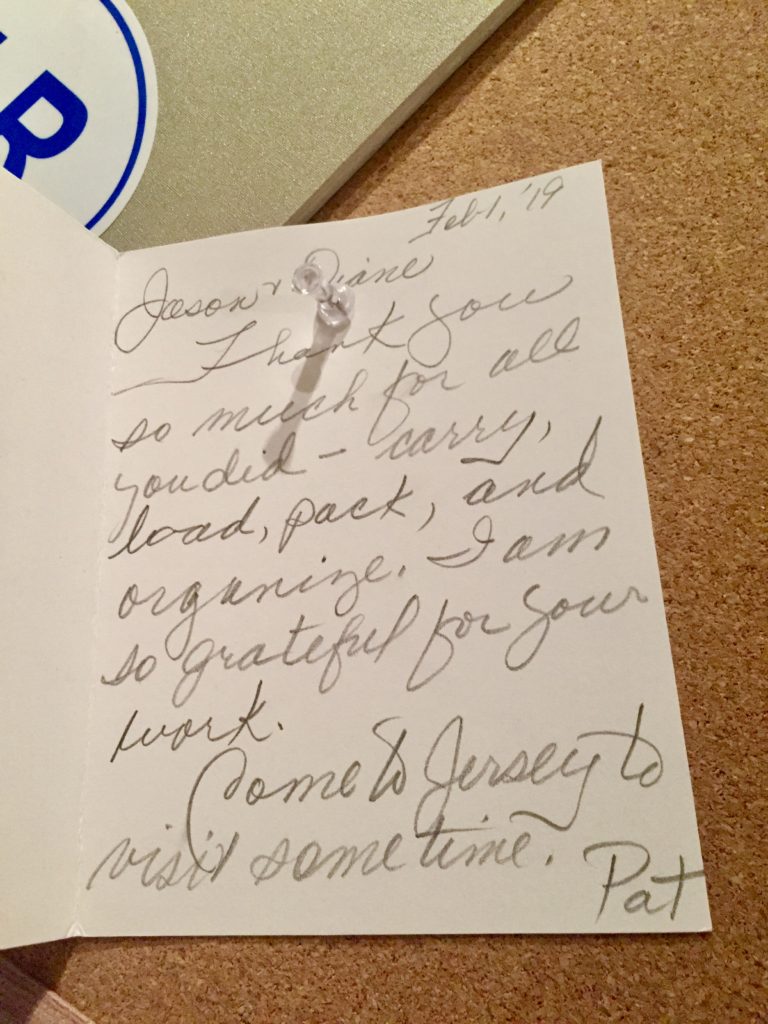 R
Feb 1, '19
Jason & Diane
Thank you
so much for all
you did – carry,
load, pack, and
organize. I am
so grateful for your
work.
Come to Jersey to
visit sometime.
Pat